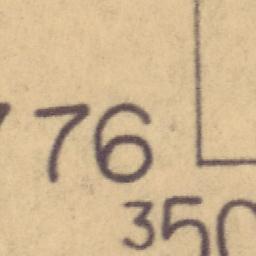 76
350